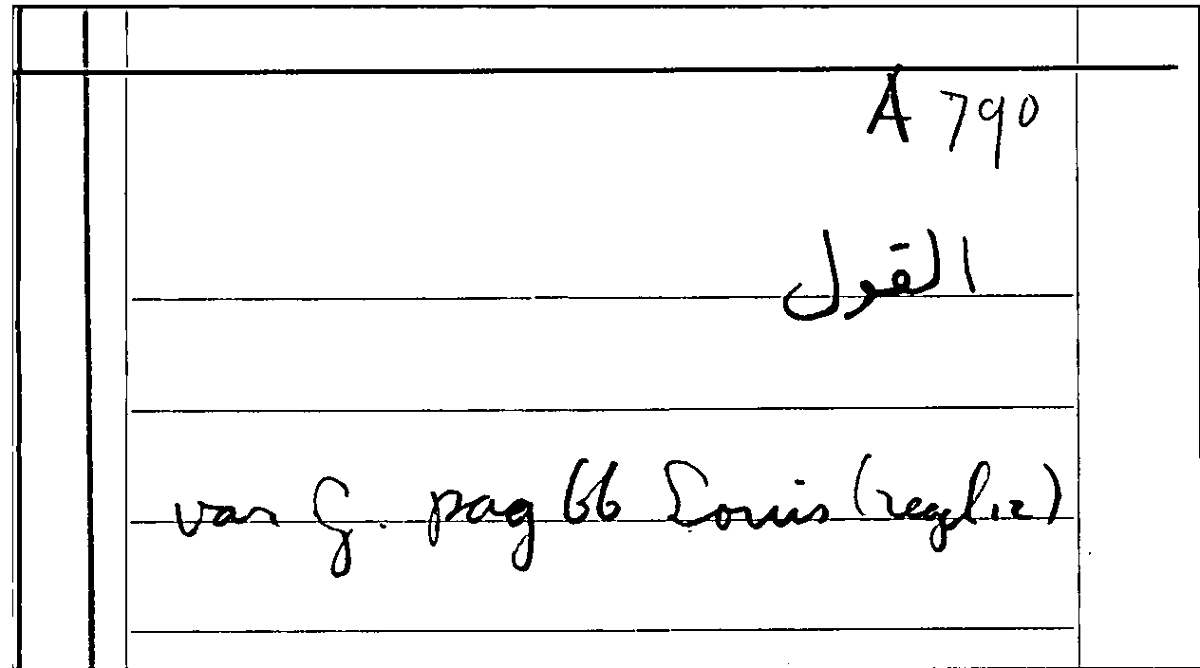 A 790
القول
var G. pag 66 Louis (regliz)